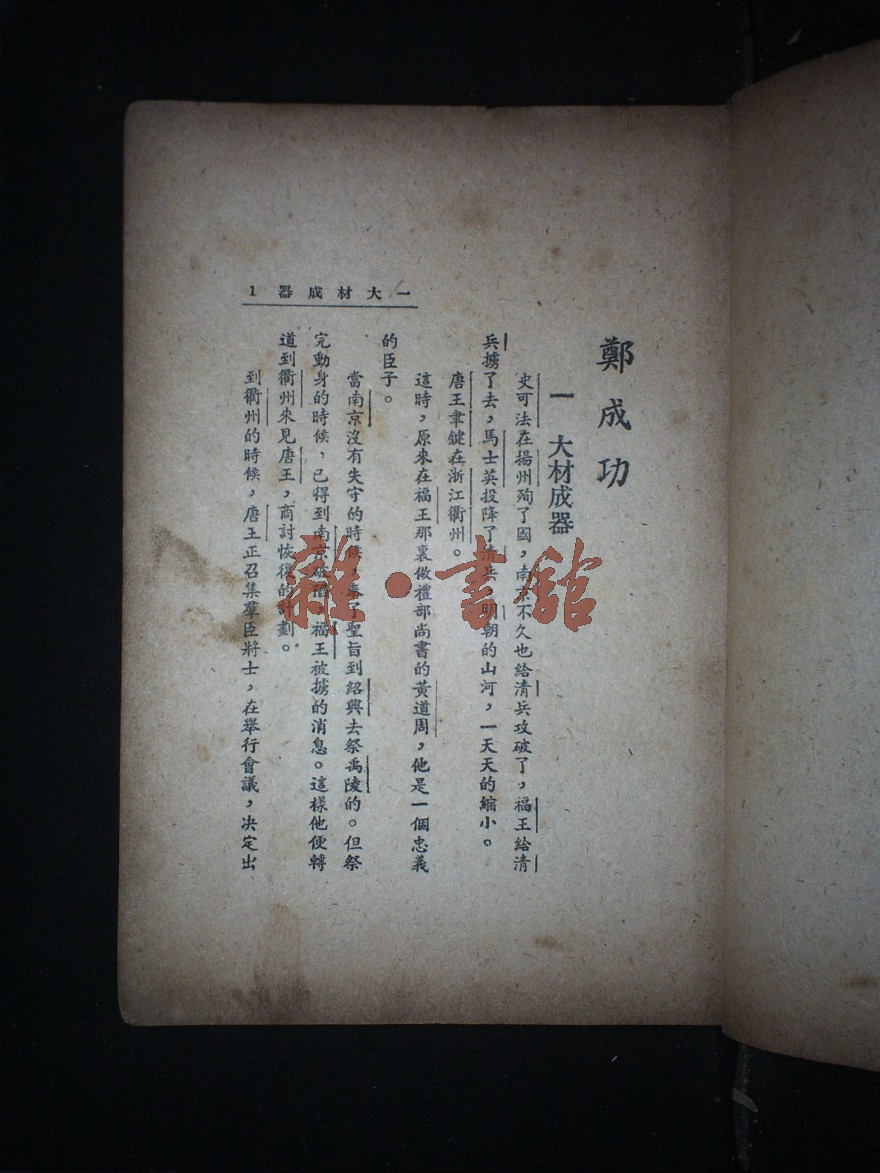 鄭成功
一 大材成器
史可法在揚州殉了國，南京不久也給清兵攻破了，福王給清
兵擄了去，馬士英投降了清兵，明朝的山河，一天天的縮小。
唐王聿鍵在浙江衢州。
這時，原來在福王那裏做禮部尚書的黃道周，他是一個忠義
的臣子。
當南京沒有失守的時候，奉了聖旨到紹興去祭禹陵的。但祭
完動身的時候，已得到南京破陷，福王被擄的消息。這樣他便轉
道到衢州來見唐王，商討恢復的計劃。
到衢州的時候，唐王正召集羣臣將士，在舉行會議，決定出
一大材成器 1
雜·書館